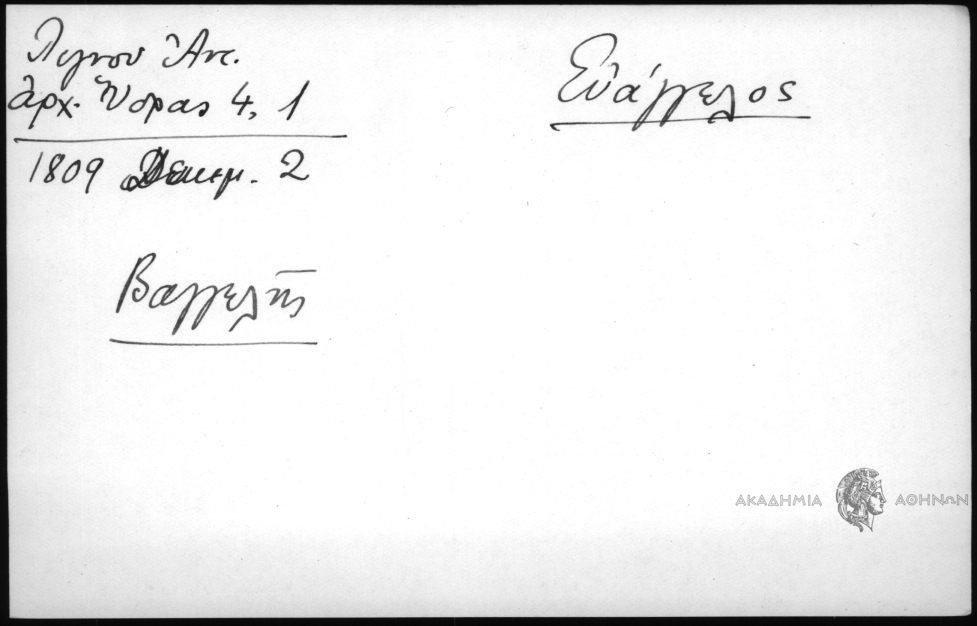 Λιγνού Ἀντ.
ἀρχ. Ὕδρας 4, 1
1809 Δεκεμ. 2
Εὐάγγελος
Βαγγελῆς
ΑΚΑΔΗΜΙΑ ΑΘΗΝΩΝ